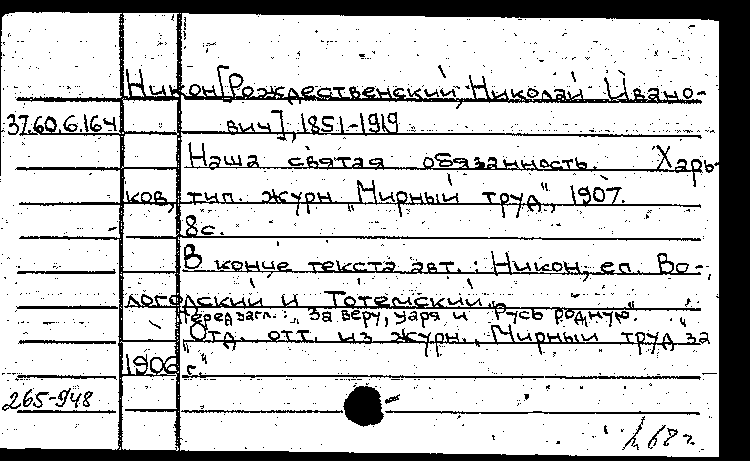 Никон[Рождественский, Николай Ивано-
37.60.6.164 вич], 1851-1919
Наша святая обязанность. Харь-
ков, тип. журн. „Мирный труд", 1907.
8с.
В конце текста авт.: Никон, еп. Во-
логодский и Тотемский.
Перед загл.: „За веру, царя и Русь родную".
"Отд. отт. из журн. „Мирный труд" за
1906 г."
265-948
68г